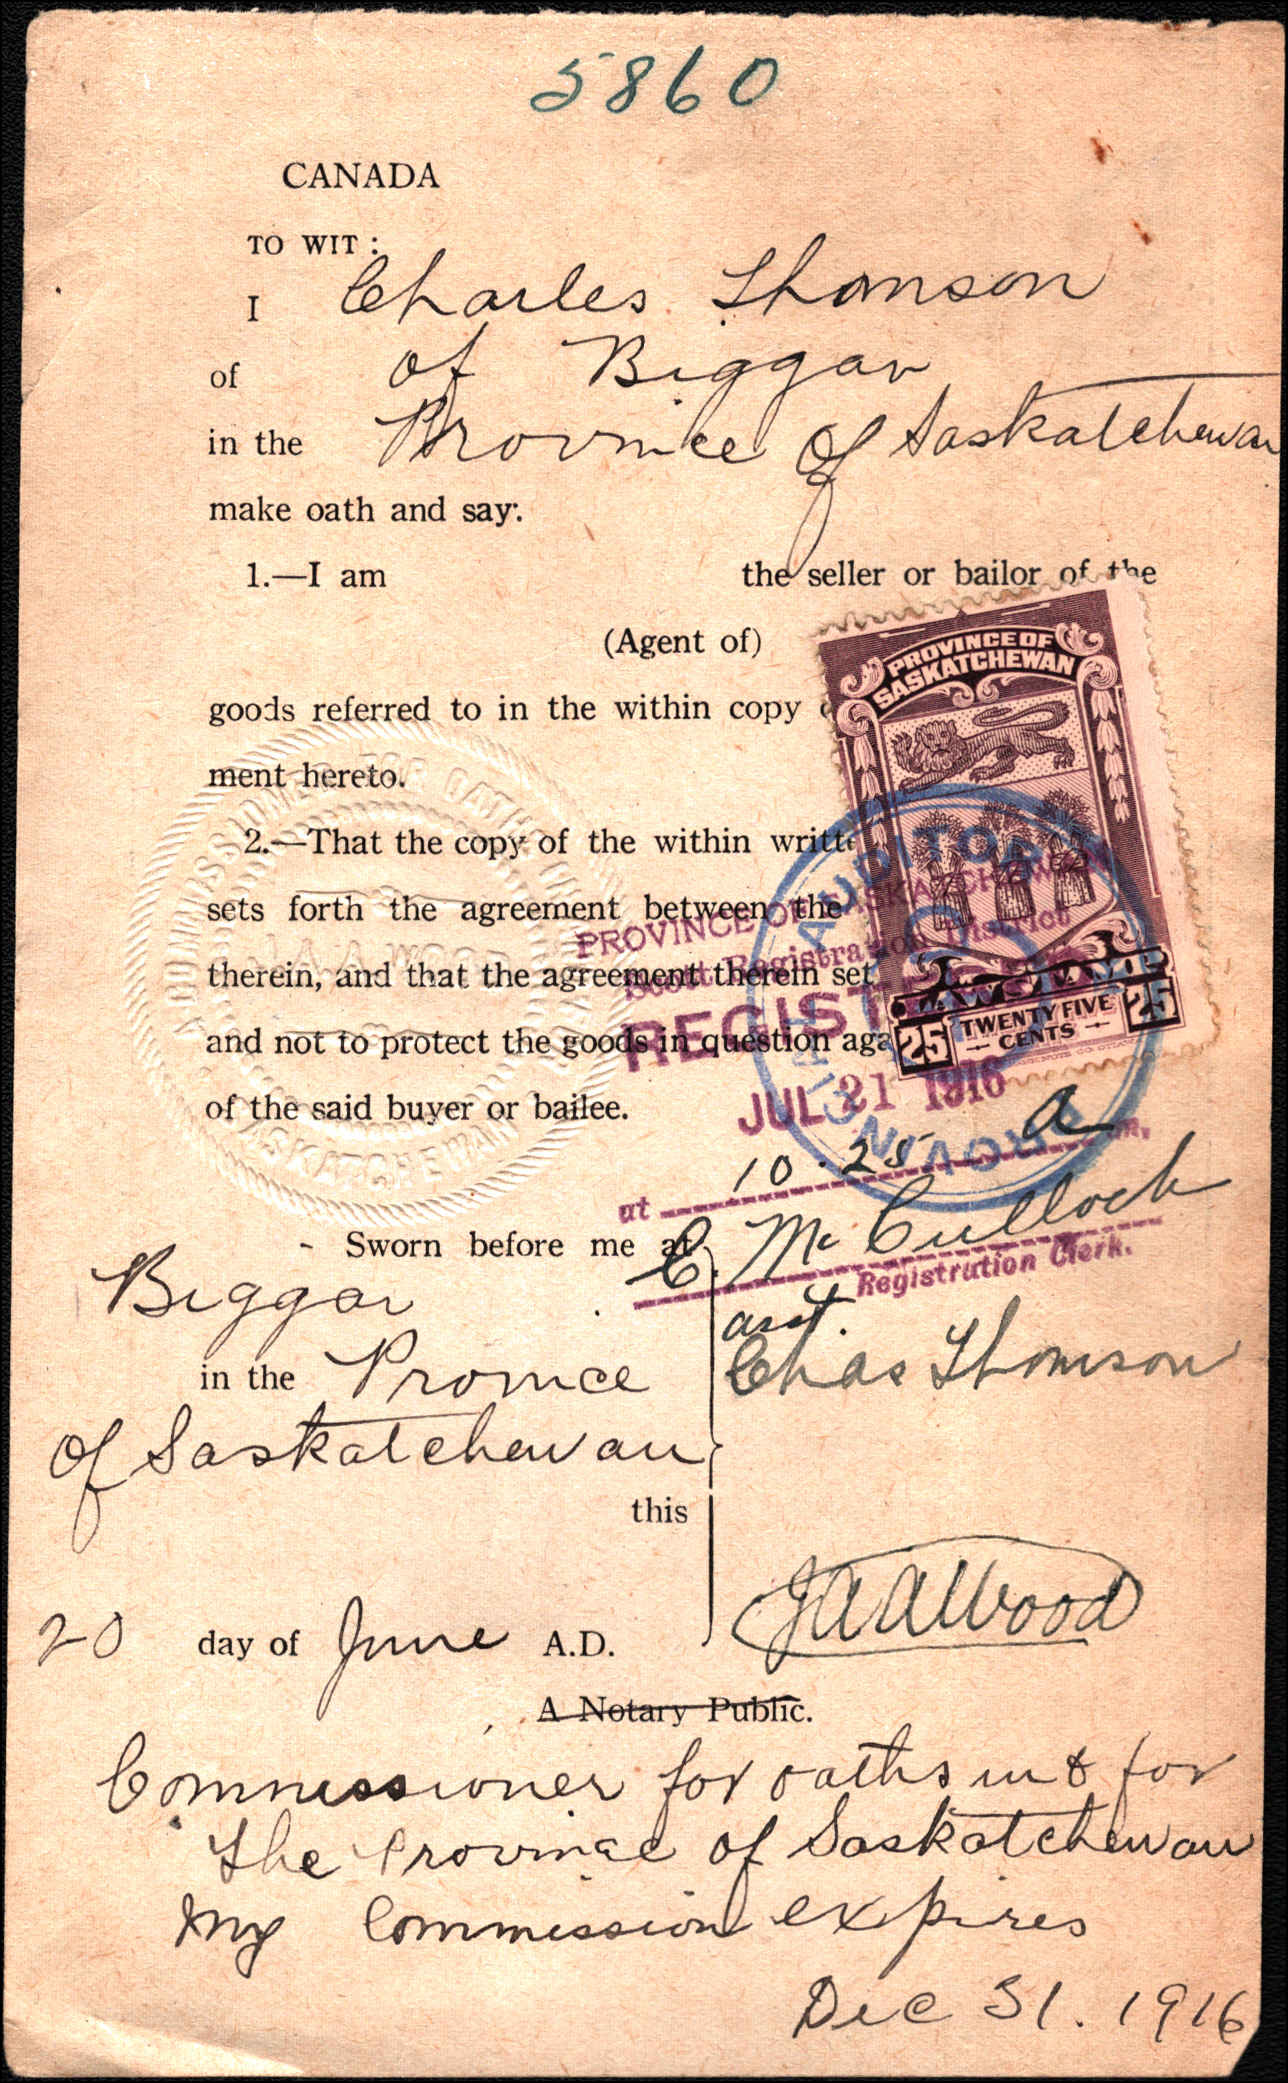 5860
CANADA
TO WIT :
I Charles Thomson
of of Biggar
in the Province of Saskatchewan
make oath and say:
1.—I am the seller or bailor of the
(Agent of)
PROVINCE OF
SASKATCHEWAN
goods referred to in the within copy
ment hereto.
2.—That the copy of the within writt
AUDITOR
sets forth the agreement between the
PROVINCE OF SASKATCHEWAN
Scott Registration District
therein, and that the agreement therein set
LAW STAMP
25 TWENTY FIVE CENTS 25
REGIST
and not to protect the goods in question aga
JUL 21 1916
of the said buyer or bailee.
PROVINCIAL
A COMMISSIONER FOR OATHS IN
J.A.A. WOOD
SASKATCHEWAN
at 10.25 a m.
C. McCulloch
Registration Clerk.
asst.
Sworn before me at
Biggar
in the Province
of Saskatchewan
Chas Thomson
this
20 day of June A.D.
JAAWood
A Notary Public.
Commissioner for oaths in & for
The Province of Saskatchewan
My Commission expires
Dec 31. 1916